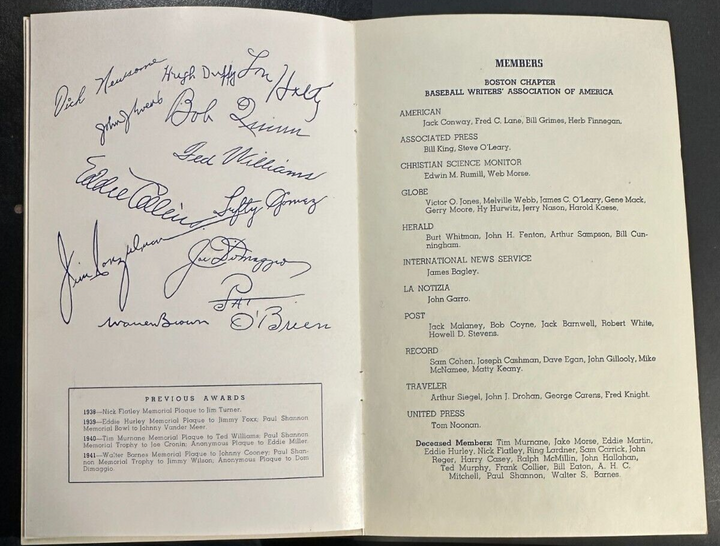 Dick Newsome
Hugh Duffy
Tom Holtz
John Evers
Bob Quinn
Ted Williams
Eddie Collins
Lefty Gomez
Jim
Joe DiMaggio
Pat
O'Brien
Warren Brown
PREVIOUS AWARDS
1938—Nick Flatley Memorial Plaque to Jim Turner.
1939—Eddie Hurley Memorial Plaque to Jimmy Foxx; Paul Shannon
Memorial Bowl to Johnny Vander Meer.
1940—Tim Murnane Memorial Plaque to Ted Williams; Paul Shannon
Memorial Trophy to Joe Cronin; Anonymous Plaque to Eddie Miller.
1941—Walter Barnes Memorial Plaque to Johnny Cooney; Paul Shan-
non Memorial Trophy to Jimmy Wilson; Anonymous Plaque to Dom
Dimaggio.
MEMBERS
BOSTON CHAPTER
BASEBALL WRITERS' ASSOCIATION OF AMERICA
AMERICAN
Jack Conway, Fred C. Lane, Bill Grimes, Herb Finnegan.
ASSOCIATED PRESS
Bill King, Steve O'Leary.
CHRISTIAN SCIENCE MONITOR
Edwin M. Rumill, Web Morse.
GLOBE
Victor O. Jones, Melville Webb, James C. O'Leary, Gene Mack,
Gerry Moore, Hy Hurwitz, Jerry Nason, Harold Kaese.
HERALD
Burt Whitman, John H. Fenton, Arthur Sampson, Bill Cun-
ningham.
INTERNATIONAL NEWS SERVICE
James Bagley.
LA NOTIZIA
John Garro.
POST
Jack Malaney, Bob Coyne, Jack Barnwell, Robert White,
Howell D. Stevens.
RECORD
Sam Cohen, Joseph Cashman, Dave Egan, John Gillooly, Mike
McNamee, Matty Keany.
TRAVELER
Arthur Siegel, John J. Drohan, George Carens, Fred Knight.
UNITED PRESS
Tom Noonan.
Deceased Members: Tim Murnane, Jake Morse, Eddie Martin,
Eddie Hurley, Nick Flatley, Ring Lardner, Sam Carrick, John
Reger, Harry Casey, Ralph McMillin, John Hallahan,
Ted Murphy, Frank Collier, Bill Eaton, A. H. C.
Mitchell, Paul Shannon, Walter S. Barnes.